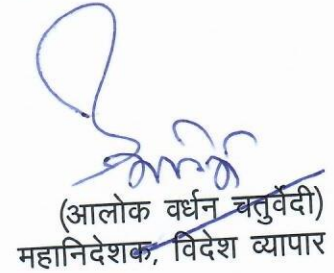 (आलोक वर्धन चतुर्वेदी)
महानिदेशक, विदेश व्यापार